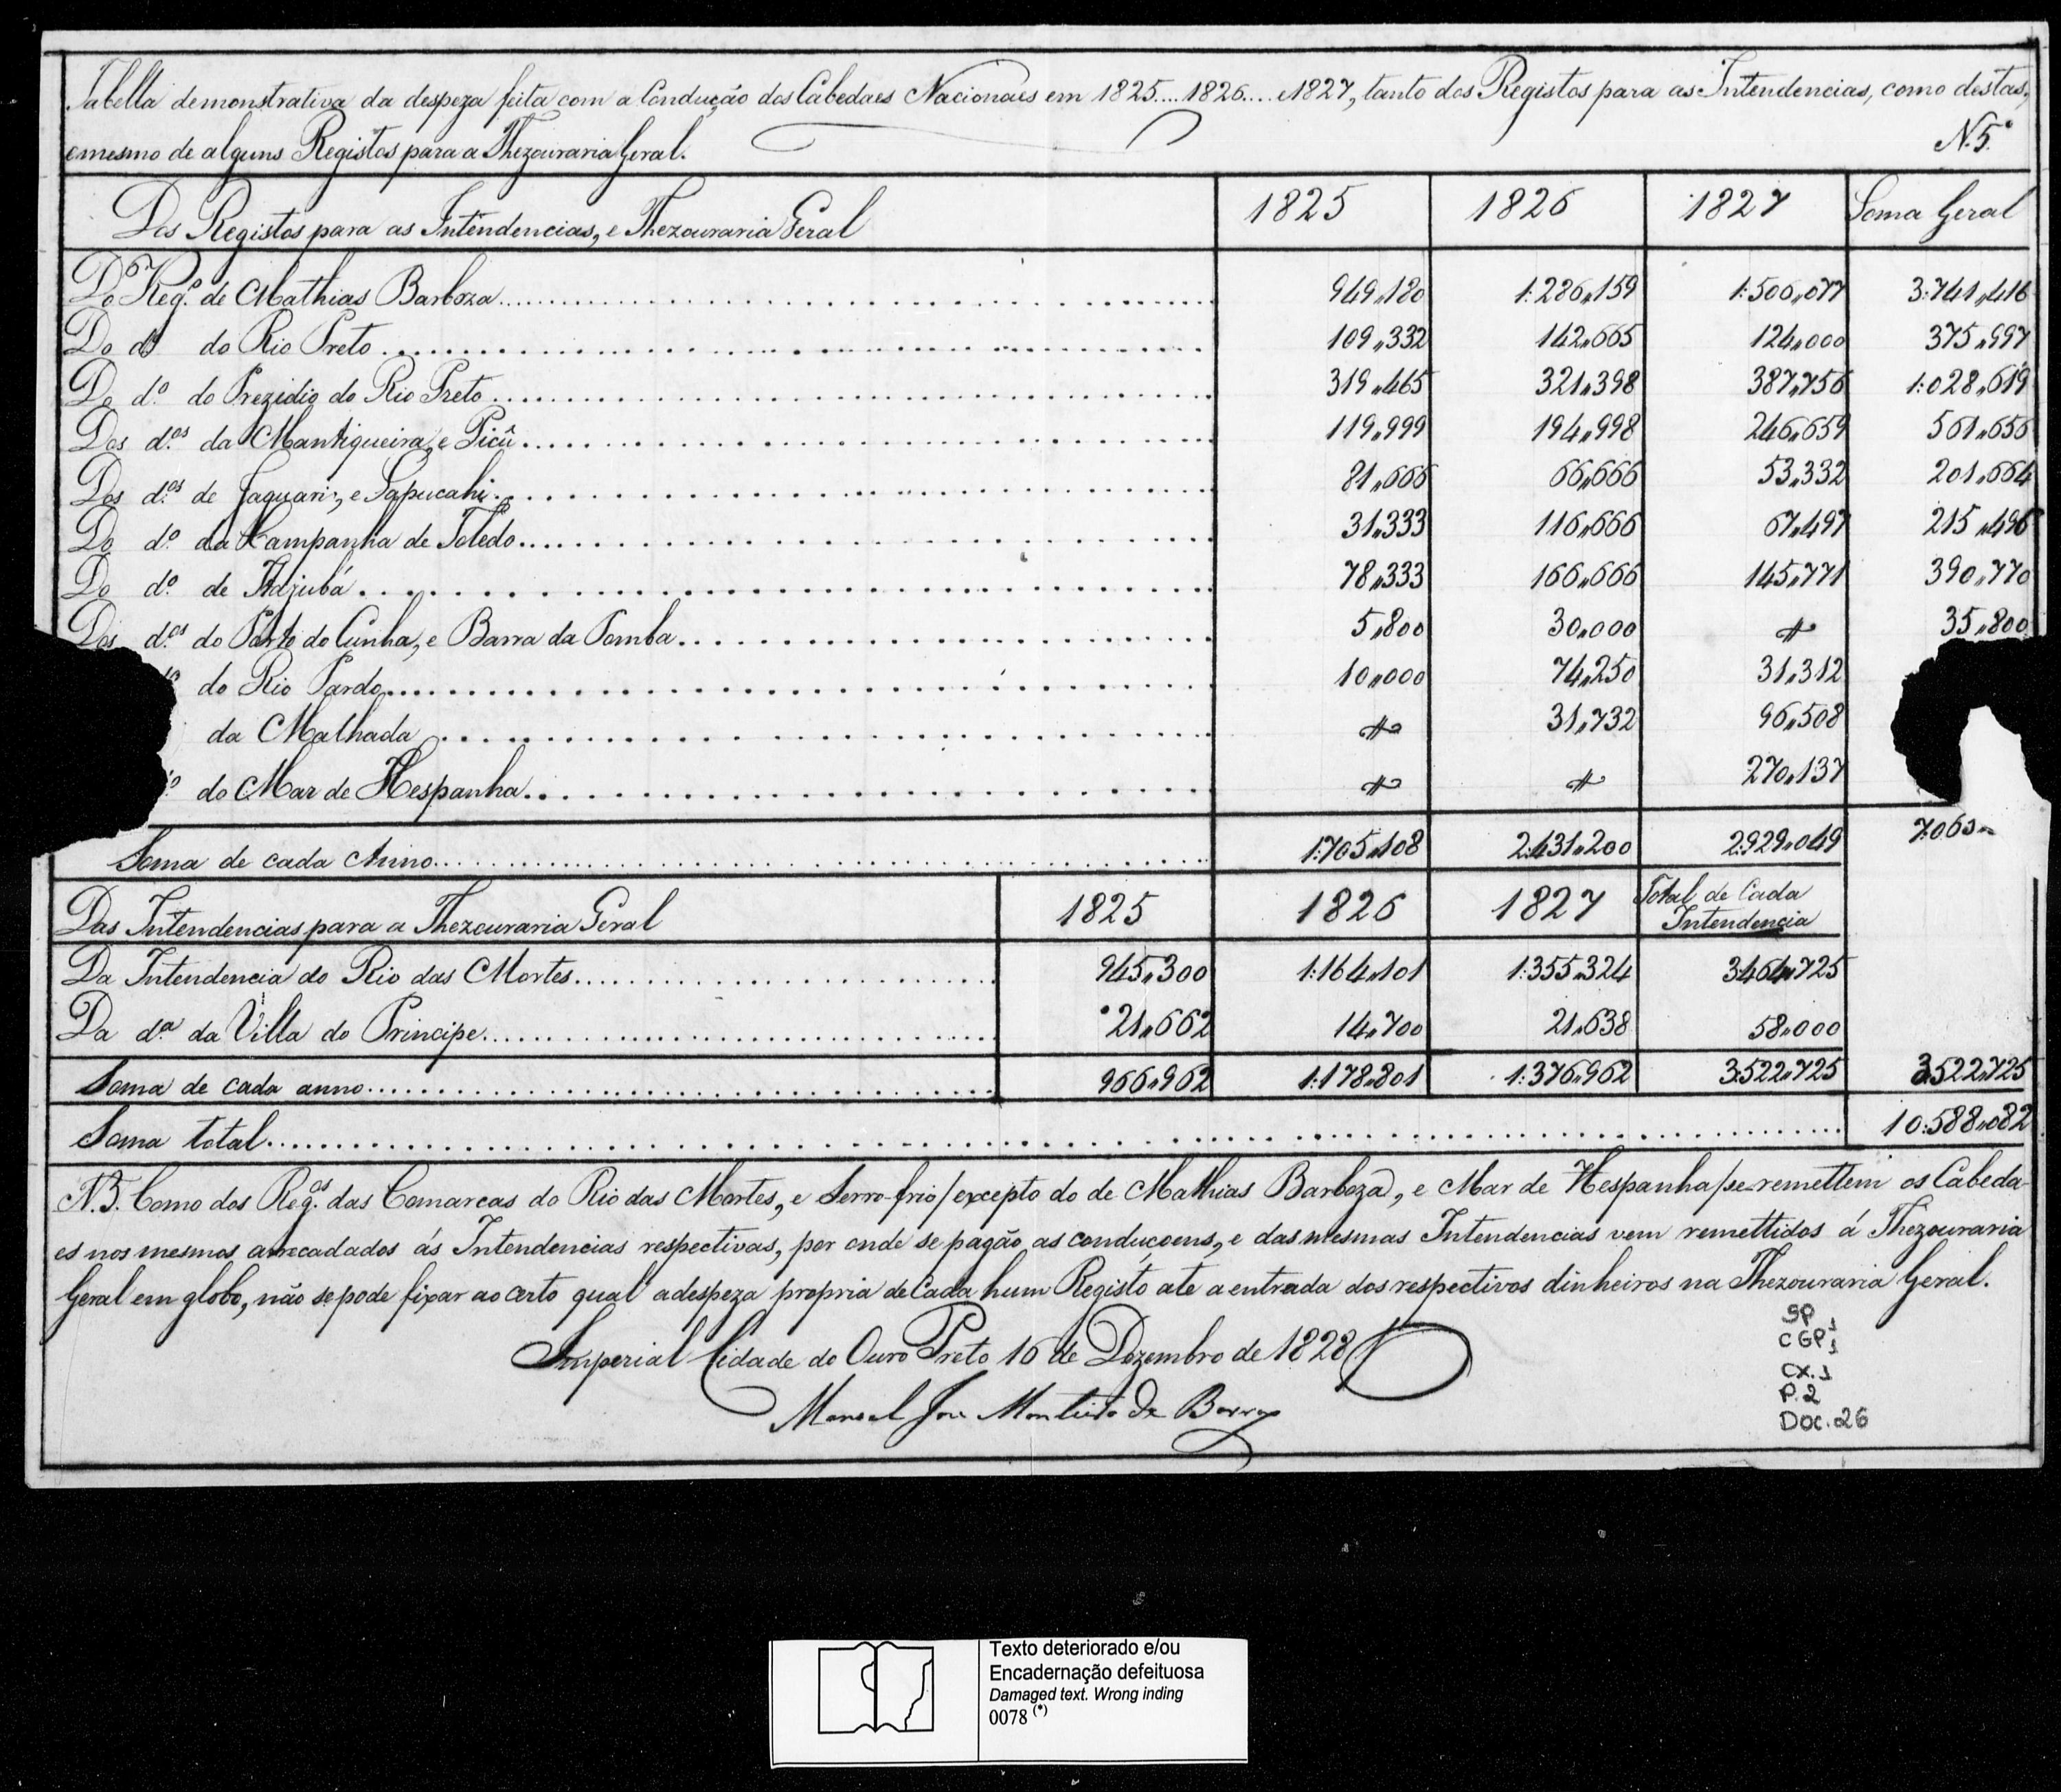 Tabella demonstrativa da despeza feita com a Conducção dos Cabedaes Nacionaes em 1825....1826....e1827, tanto dos Registos para as Intendencias, como destas,
e mesmo de alguns Registos para a Thezouraria Geral. N.5.º
Dos Registos para as Intendencias, e Thezouraria Geral 1825 1826 1827 Soma Geral
Do Reg.º de Mathias Barboza 949,180 1:286,159 1:506,077 3:741,416
Do dº do Rio Preto 109,332 142,665 124,000 375,997
Do d.º do Prezidio do Rio Preto 319,465 321,398 387,756 1:028,619
Dos d.os da Mantiqueira, e Picû 119,999 194,998 246,659 561,656
Dos d.os de Jaguari, e Sapucahi 81,666 66,666 53,332 201,664
Do d.º da Campanha de Toledo 31,333 116,666 67,497 215,496
Do d.º de Itajubá 78,333 166,666 145,771 390,770
Dos d.os do Porto do Cunha, e Barra da Pomba 5,800 30,000 # 35,800
do Rio Pardo 10,000 74,250 31,312
da Malhada # 31,732 96,508
º do Mar de Hespanha # # 270,137
Soma de cada Anno 1:705,108 2:431,200 2:929,049 7:065
Das Intendencias para a Thezouraria Geral 1825 1826 1827 Total de Cada Intendencia
Da Intendencia do Rio das Mortes 945,300 1:164,101 1:355,324 3:464,725
Da d.ª da Villa do Principe 21,662 14,700 21,638 58,000
Soma de cada anno 966,962 1:178,801 1:376,962 3:522,725 3:522,725
Soma total 10:588,082
N.B. Como dos Reg.os das Comarcas do Rio das Mortes, e Serro-frio/excepto do de Mathias Barboza, e Mar de Hespanha/se remettem os Cabeda-
es nos mesmos arrecadados ás Intendencias respectivas, por onde se pagão as conducoens, e das mesmas Intendencias vem remettidos á Thezouraria
Geral em globo, não se pode fixar ao certo qual a despeza propria de Cada hum Registo ate a entrada dos respectivos dinheiros na Thezouraria Geral.
Imperial Cidade do Ouro Preto 16 de Dezembro de 1828
Manoel José Monteiro de Barros
SP 1
CGP 1
CX.1
P.2
DOC.26
Texto deteriorado e/ou
Encadernação defeituosa
Damaged text. Wrong inding
0078 (*)